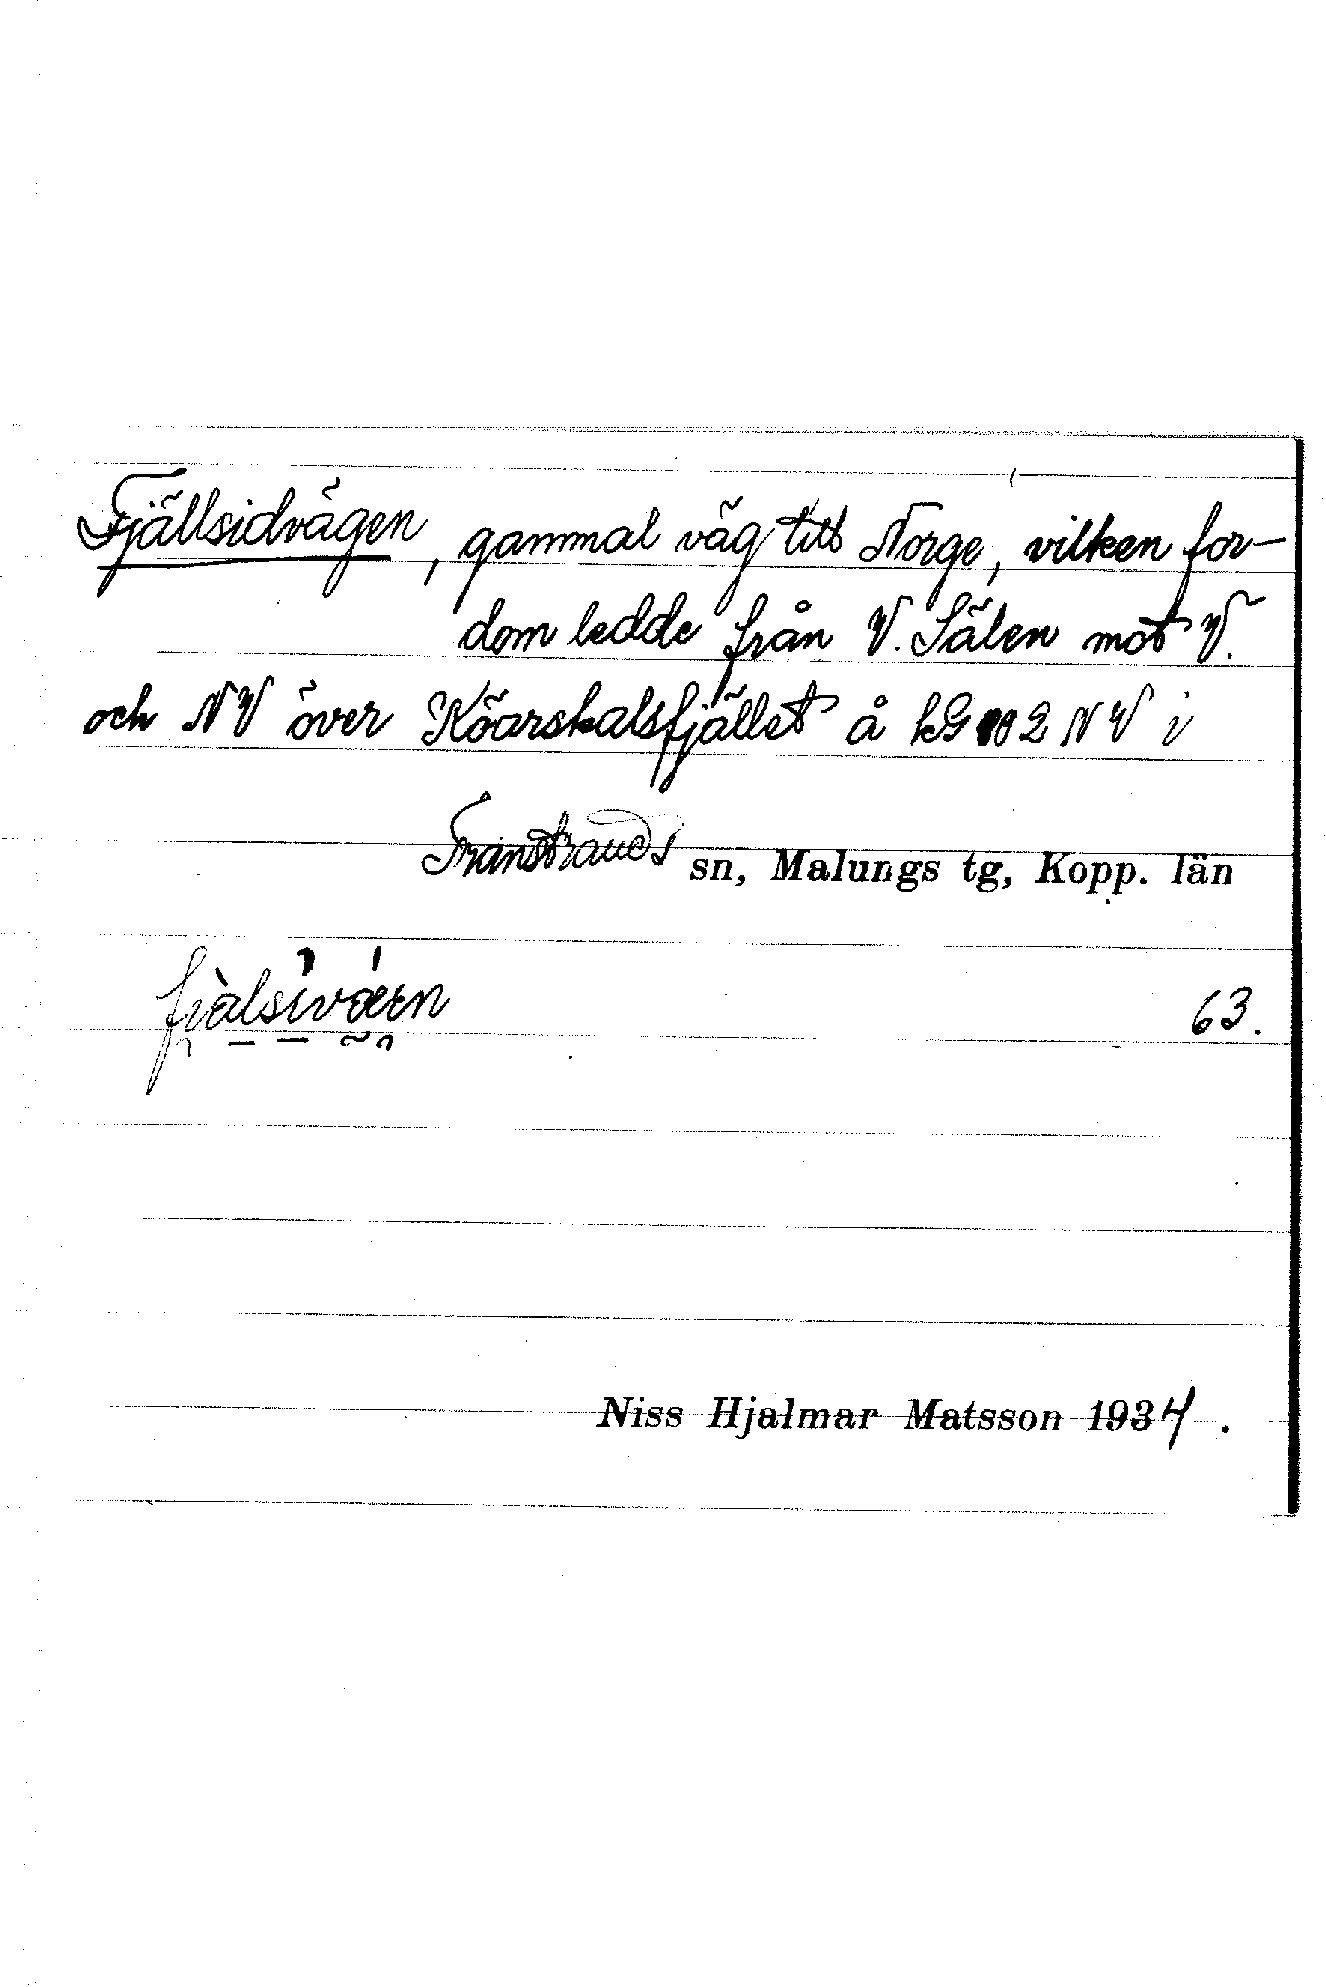 Fjällsidvägen, gammal väg till Norge, vilken for-
dom ledde från V. Sälen mot V.
och NV över Köarskalsfjället å kG 2 NV i
Transtrands sn, Malungs tg, Kopp. län
63.
Niss Hjalmar Matsson 1934.